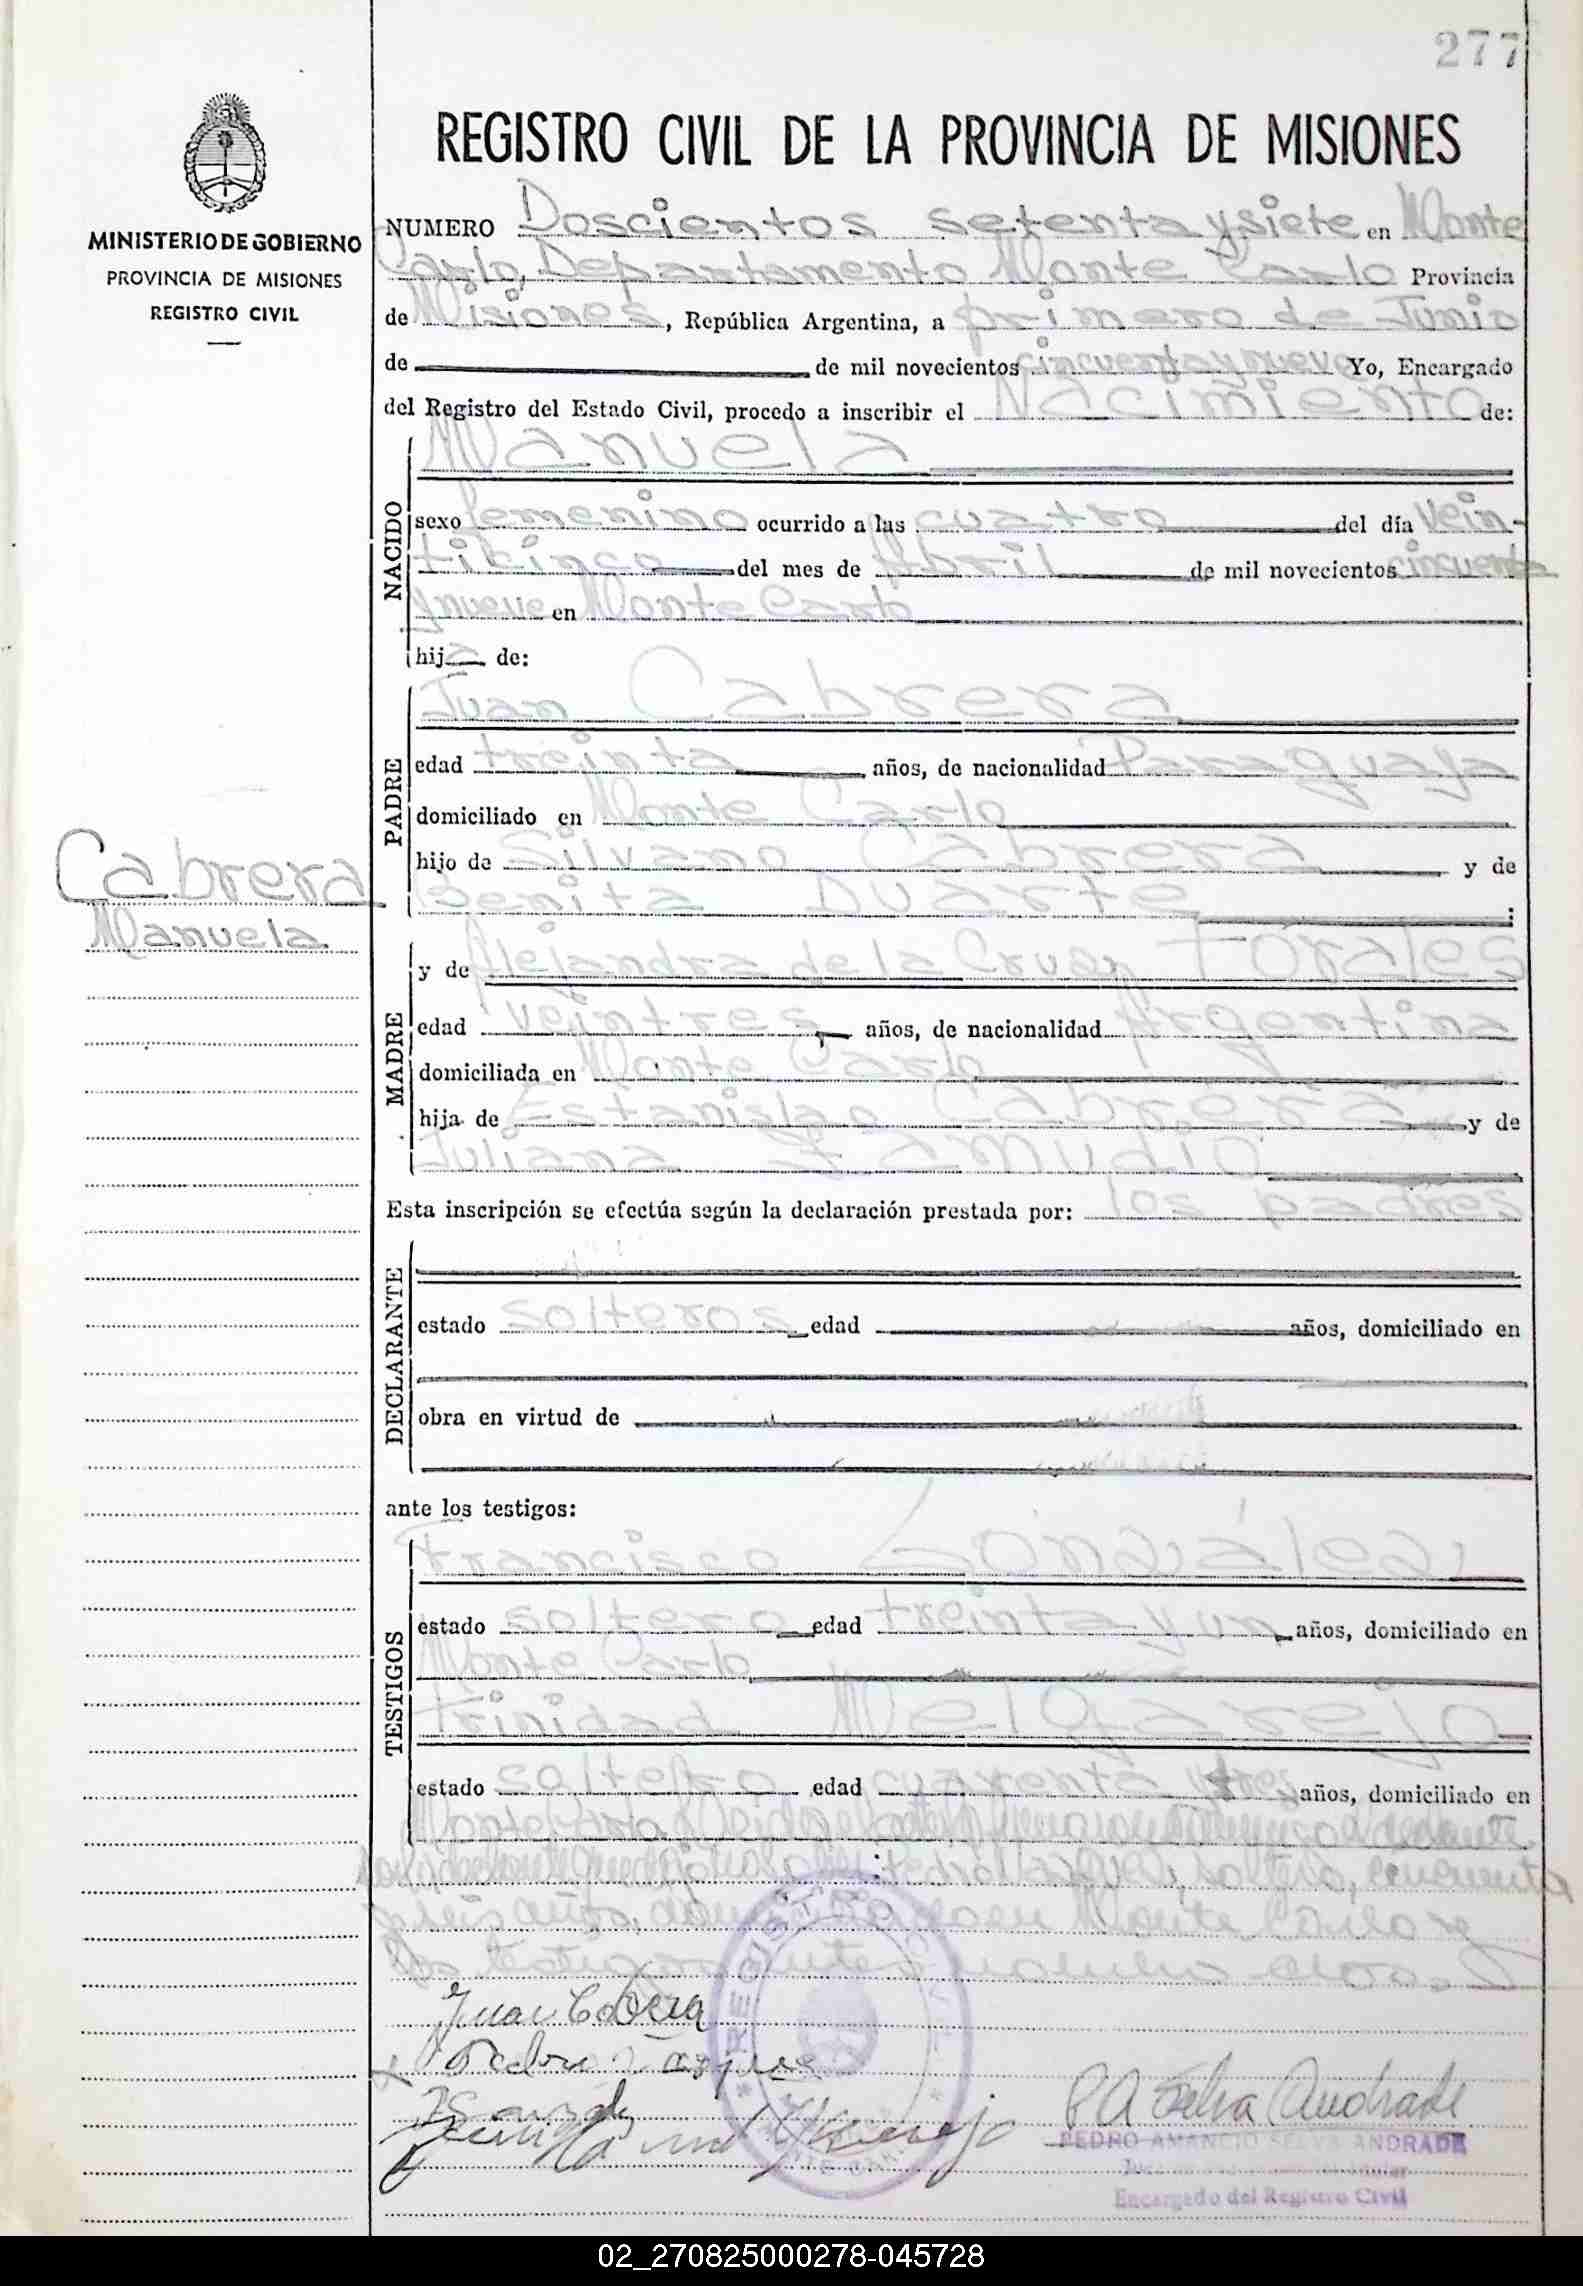 277
REGISTRO CIVIL DE LA PROVINCIA DE MISIONES
MINISTERIO DE GOBIERNO
PROVINCIA DE MISIONES
REGISTRO CIVIL
NUMERO Doscientos setenta y siete en Monte
Carlo, Departamento Monte Carlo Provincia
de Misiones, República Argentina, a primero de Junio
de de mil novecientos cincuenta y nueve Yo, Encargado
del Registro del Estado Civil, procedo a inscribir el Nacimiento de:
NACIDO
Manuela
sexo femenino ocurrido a las cuatro del día vein-
ticinco del mes de Abril de mil novecientos cincuenta
y nueve en Monte Carlo
hija de:
PADRE
Juan Cabrera
edad treinta años, de nacionalidad Paraguaya
domiciliado en Monte Carlo
hijo de Silvano Cabrera y de
Benita Duarte :
Cabrera
Manuela
MADRE
y de Alejandra de la Cruz
edad veintres, años, de nacionalidad Argentina
domiciliada en Monte Carlo
hija de Estanislao Cabrera y de
Juliana Zamudio
Esta inscripción se efectúa según la declaración prestada por: los padres
DECLARANTE
estado solteros edad años, domiciliado en
obra en virtud de
ante los testigos:
TESTIGOS
Francisco González
estado soltero edad treinta y un años, domiciliado en
Monte Carlo
Trinidad Melgarejo
estado soltero edad cuarenta y tres años, domiciliado en
Monte Carlo
soltero, cincuenta
años, en Monte Carlo y
los testigos antes
Juan Cabrera
Pedro
P A Selva Andrade
PEDRO AMANCIO SELVA ANDRADE
Encargado del Registro Civil
REGISTRO CIVIL
02_270825000278-045728